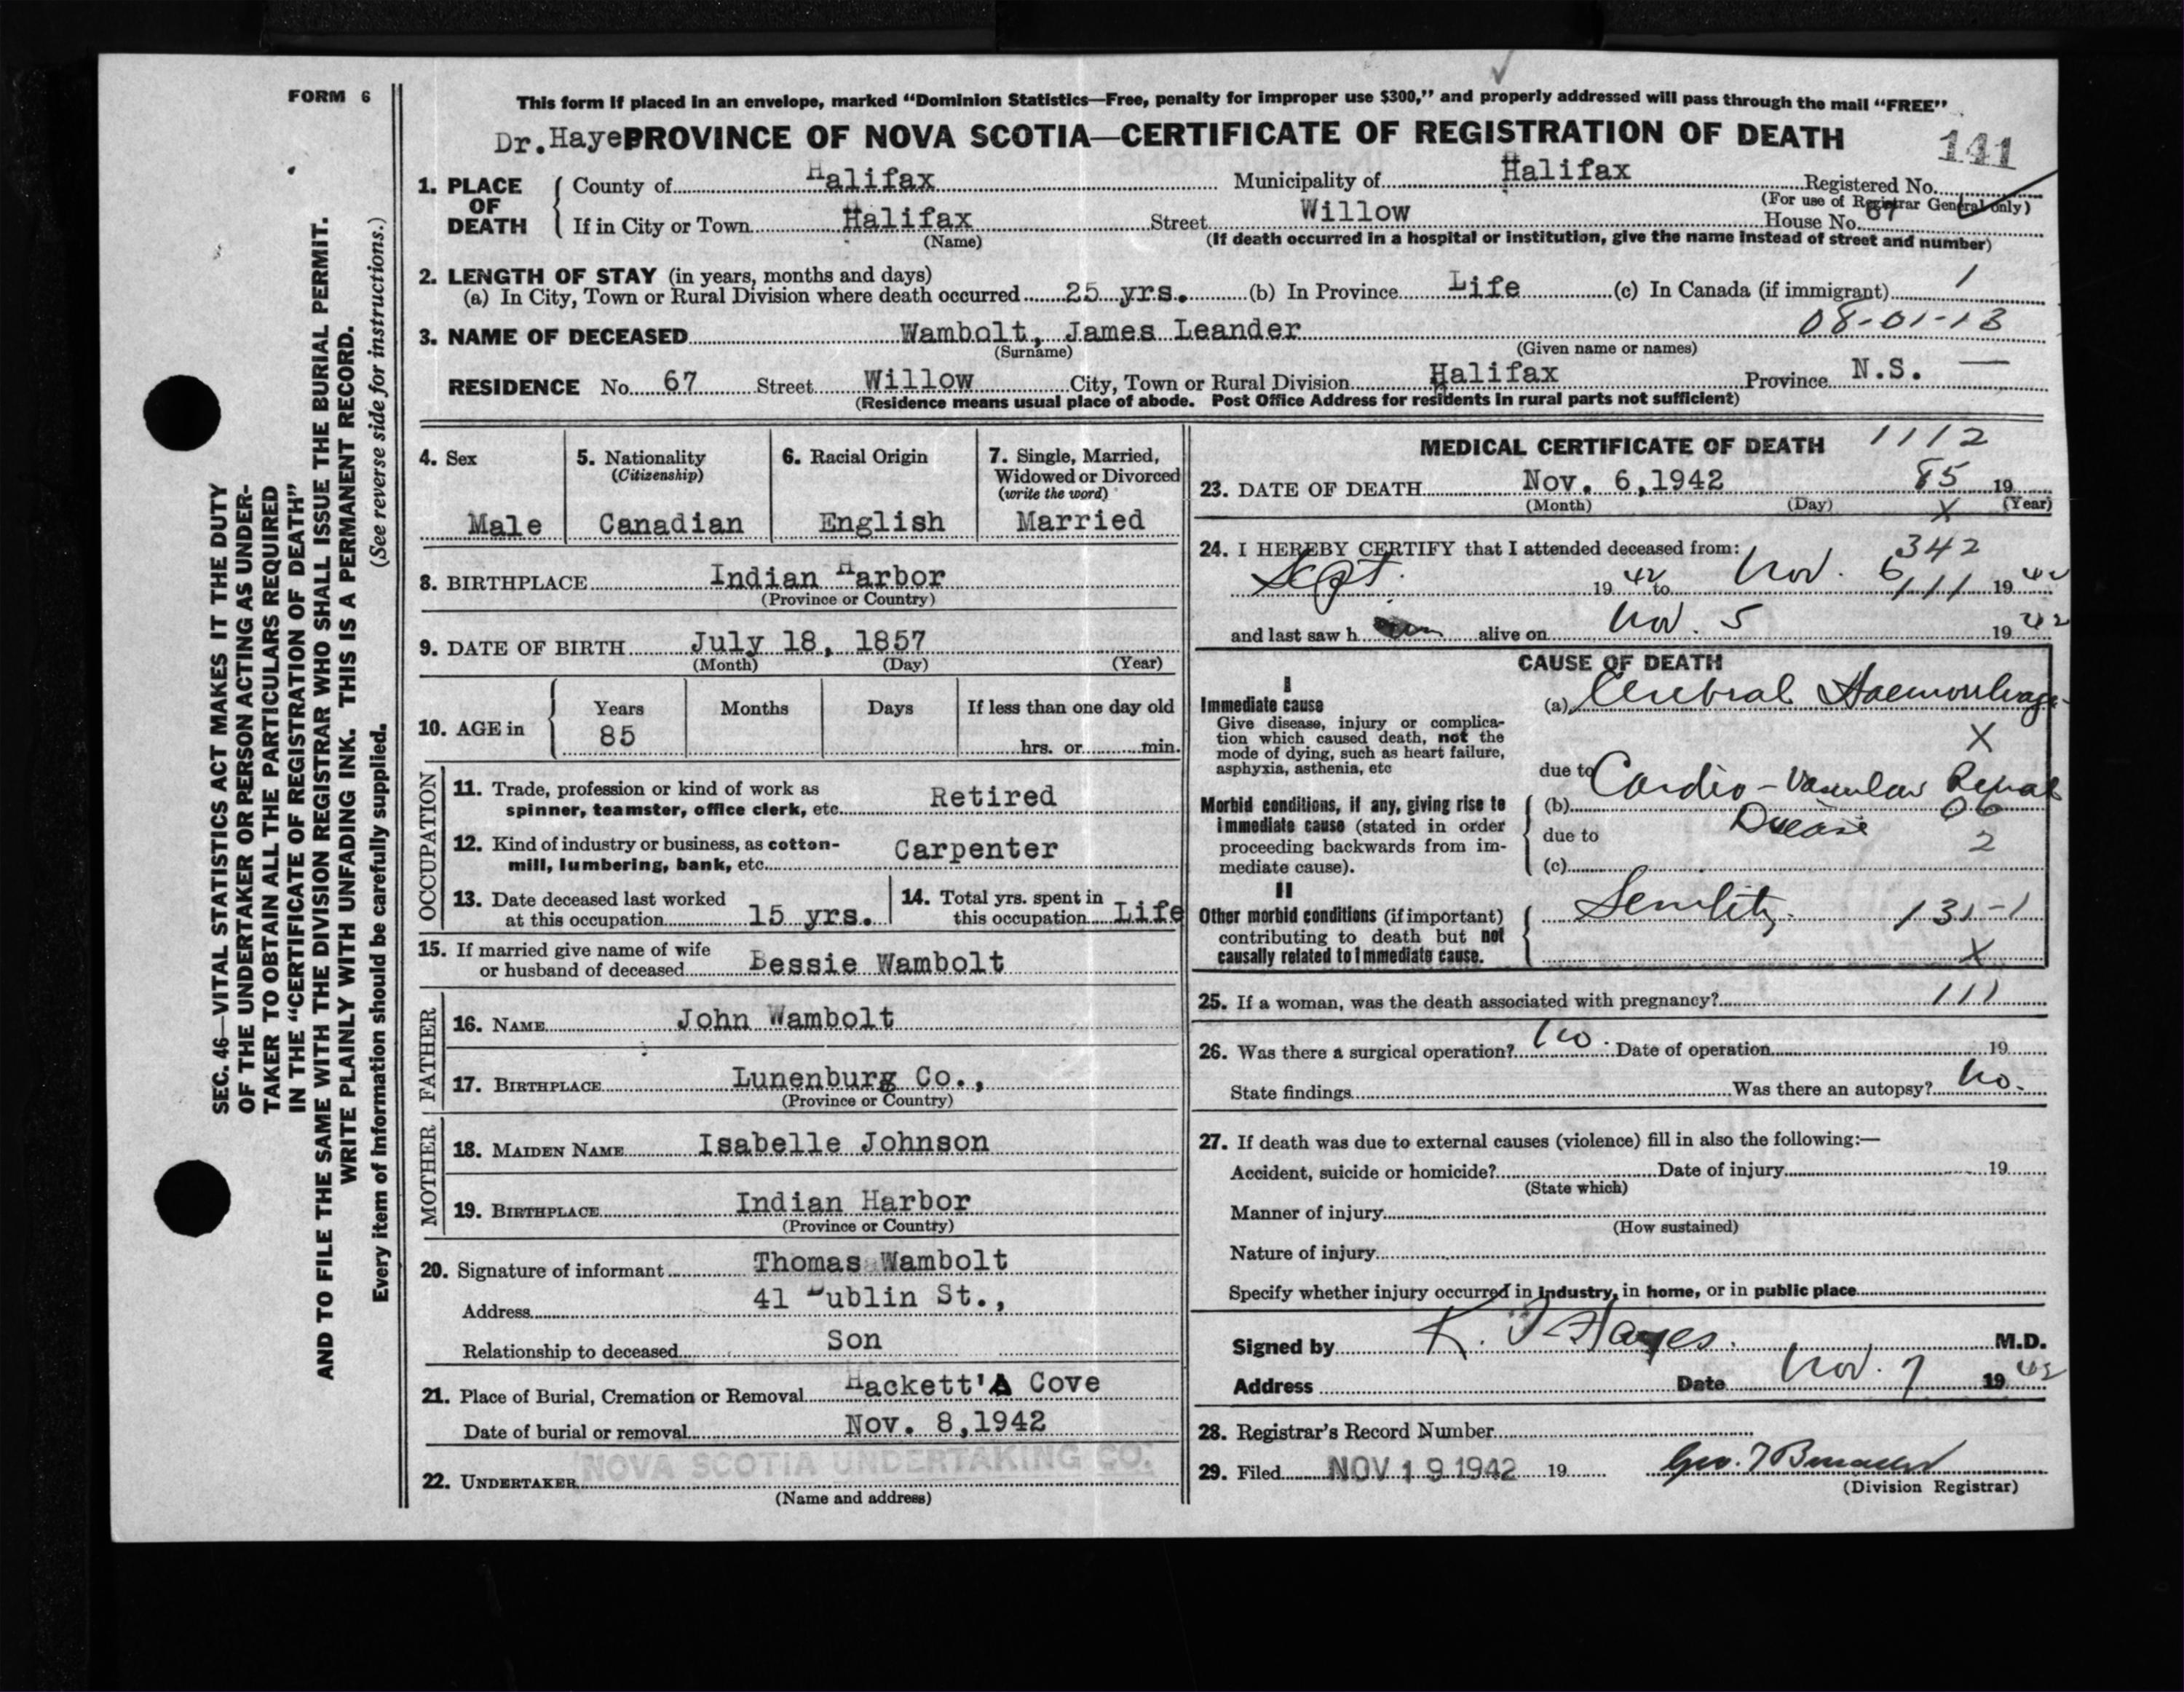 FORM 6
This form if placed in an envelope, marked “Dominion Statistics—Free, penalty for improper use $300,” and properly addressed will pass through the mail “FREE”
Dr. Haye PROVINCE OF NOVA SCOTIA—CERTIFICATE OF REGISTRATION OF DEATH 141
1. PLACE OF DEATH
County of Halifax Municipality of Halifax Registered No.
(For use of Registrar General only)
If in City or Town Halifax Street Willow House No. 67
(Name) (If death occurred in a hospital or institution, give the name instead of street and number)
2. LENGTH OF STAY (in years, months and days)
(a) In City, Town or Rural Division where death occurred 25 yrs. (b) In Province Life (c) In Canada (if immigrant) 1
3. NAME OF DECEASED Wambolt, James Leander 08-01-13
(Surname) (Given name or names)
RESIDENCE No. 67 Street Willow City, Town or Rural Division Halifax Province N.S.
(Residence means usual place of abode. Post Office Address for residents in rural parts not sufficient)
4. Sex
Male
5. Nationality
(Citizenship)
Canadian
6. Racial Origin
English
7. Single, Married,
Widowed or Divorced
(write the word)
Married
8. BIRTHPLACE Indian Harbor
(Province or Country)
9. DATE OF BIRTH July 18, 1857
(Month) (Day) (Year)
10. AGE in
Years Months Days If less than one day old
85 hrs. or min.
OCCUPATION
11. Trade, profession or kind of work as
spinner, teamster, office clerk, etc. Retired
12. Kind of industry or business, as cotton-
mill, lumbering, bank, etc. Carpenter
13. Date deceased last worked
at this occupation 15 yrs.
14. Total yrs. spent in
this occupation Life
15. If married give name of wife
or husband of deceased Bessie Wambolt
FATHER
16. NAME John Wambolt
17. BIRTHPLACE Lunenburg Co.,
(Province or Country)
MOTHER
18. MAIDEN NAME Isabelle Johnson
19. BIRTHPLACE Indian Harbor
(Province or Country)
20. Signature of informant Thomas Wambolt
Address 41 Dublin St.,
Relationship to deceased Son
21. Place of Burial, Cremation or Removal Hackett's Cove
Date of burial or removal Nov. 8,1942
22. UNDERTAKER NOVA SCOTIA UNDERTAKING CO.
(Name and address)
MEDICAL CERTIFICATE OF DEATH 1112
23. DATE OF DEATH Nov. 6,1942 85 19
(Month) (Day) X (Year)
24. I HEREBY CERTIFY that I attended deceased from: 342
Sept. 19 42 to Nov. 6 111 19 42
and last saw h alive on Nov. 5 19 42
CAUSE OF DEATH
I
Immediate cause
Give disease, injury or complica-
tion which caused death, not the
mode of dying, such as heart failure,
asphyxia, asthenia, etc
(a) Cerebral Haemorrhage
X
due to Cardio-Vascular Renal
Morbid conditions, if any, giving rise to
immediate cause (stated in order
proceeding backwards from im-
mediate cause).
(b) Disease 06
due to 2
(c)
II
Other morbid conditions (if important)
contributing to death but not
causally related to immediate cause.
Senility. 131-1
X
25. If a woman, was the death associated with pregnancy? 111
26. Was there a surgical operation? No. Date of operation 19
State findings Was there an autopsy? No.
27. If death was due to external causes (violence) fill in also the following:—
Accident, suicide or homicide? Date of injury 19
(State which)
Manner of injury
(How sustained)
Nature of injury
Specify whether injury occurred in industry, in home, or in public place
Signed by K. Hayes. M.D.
Address Date Nov. 7 19 42
28. Registrar's Record Number
29. Filed NOV 19 1942 19 Geo.
(Division Registrar)
SEC. 46—VITAL STATISTICS ACT MAKES IT THE DUTY
OF THE UNDERTAKER OR PERSON ACTING AS UNDER-
TAKER TO OBTAIN ALL THE PARTICULARS REQUIRED
IN THE “CERTIFICATE OF REGISTRATION OF DEATH”
AND TO FILE THE SAME WITH THE DIVISION REGISTRAR WHO SHALL ISSUE THE BURIAL PERMIT.
WRITE PLAINLY WITH UNFADING INK. THIS IS A PERMANENT RECORD.
Every item of information should be carefully supplied. (See reverse side for instructions.)